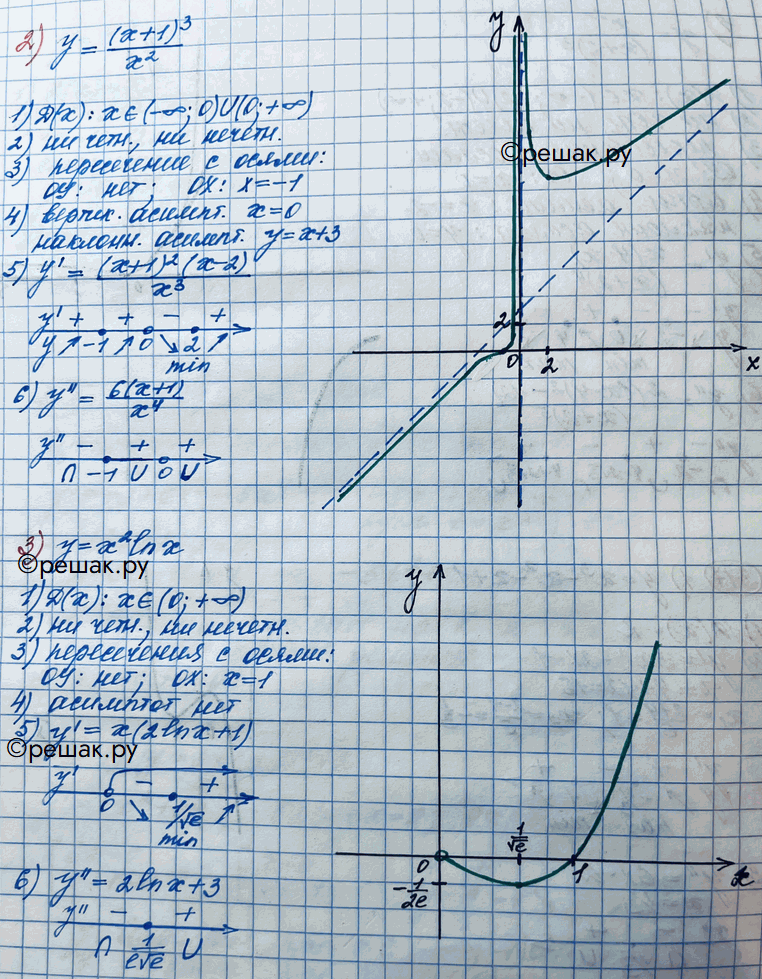 2) y = (x+1)³/x²
1) D(x): x∈(-∞; 0)U(0; +∞)
2) ни четн., ни нечетн.
3) пересечение с осями:
OY: нет; OX: x=-1
4) вертик. асимпт. x=0
наклонн. асимпт. y=x+3
5) y' = (x+1)²(x-2)/x³
y' + + - +
y ↗ -1 ↗ 0 ↘ 2 ↗
min
6) y'' = 6(x+1)/x⁴
y'' - + +
∩ -1 U 0 U
y
©решак.ру
2
0 2 x
3) y=x²lnx
©решак.ру
1) D(x): x∈(0; +∞)
2) ни четн., ни нечетн.
3) пересечения с осями:
OY: нет; OX: x=1
4) асимптот нет
5) y' = x(2lnx+1)
©решак.ру
y' - +
0 ↘ 1/√e ↗
min
6) y'' = 2lnx+3
y'' - +
∩ 1/e√e U
y
1/√e
0 1 x
-1/2e